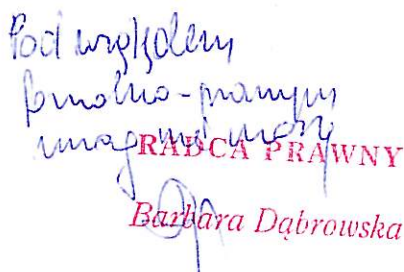 Pod względem
formalno-prawnym
uwag nie wnoszę
RADCA PRAWNY
Barbara Dąbrowska